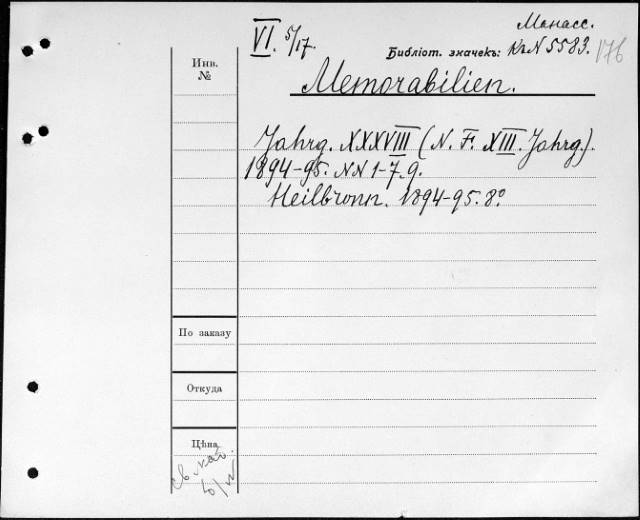 Манасс.
VI. 5/17.
Библіот. значекъ: Кз N 5583. 176
Инв.
№
Memorabilien.
Jahrg. XXXVIII (N. F. XIII. Jahrg.).
1894-95. NN 1-7. 9.
Heilbronn. 1894-95. 8º
По заказу
Откуда
Цѣна